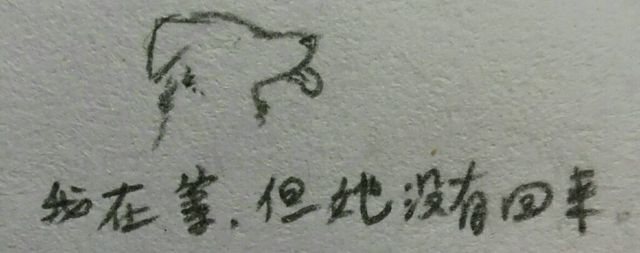 我在等.但她没有回来.